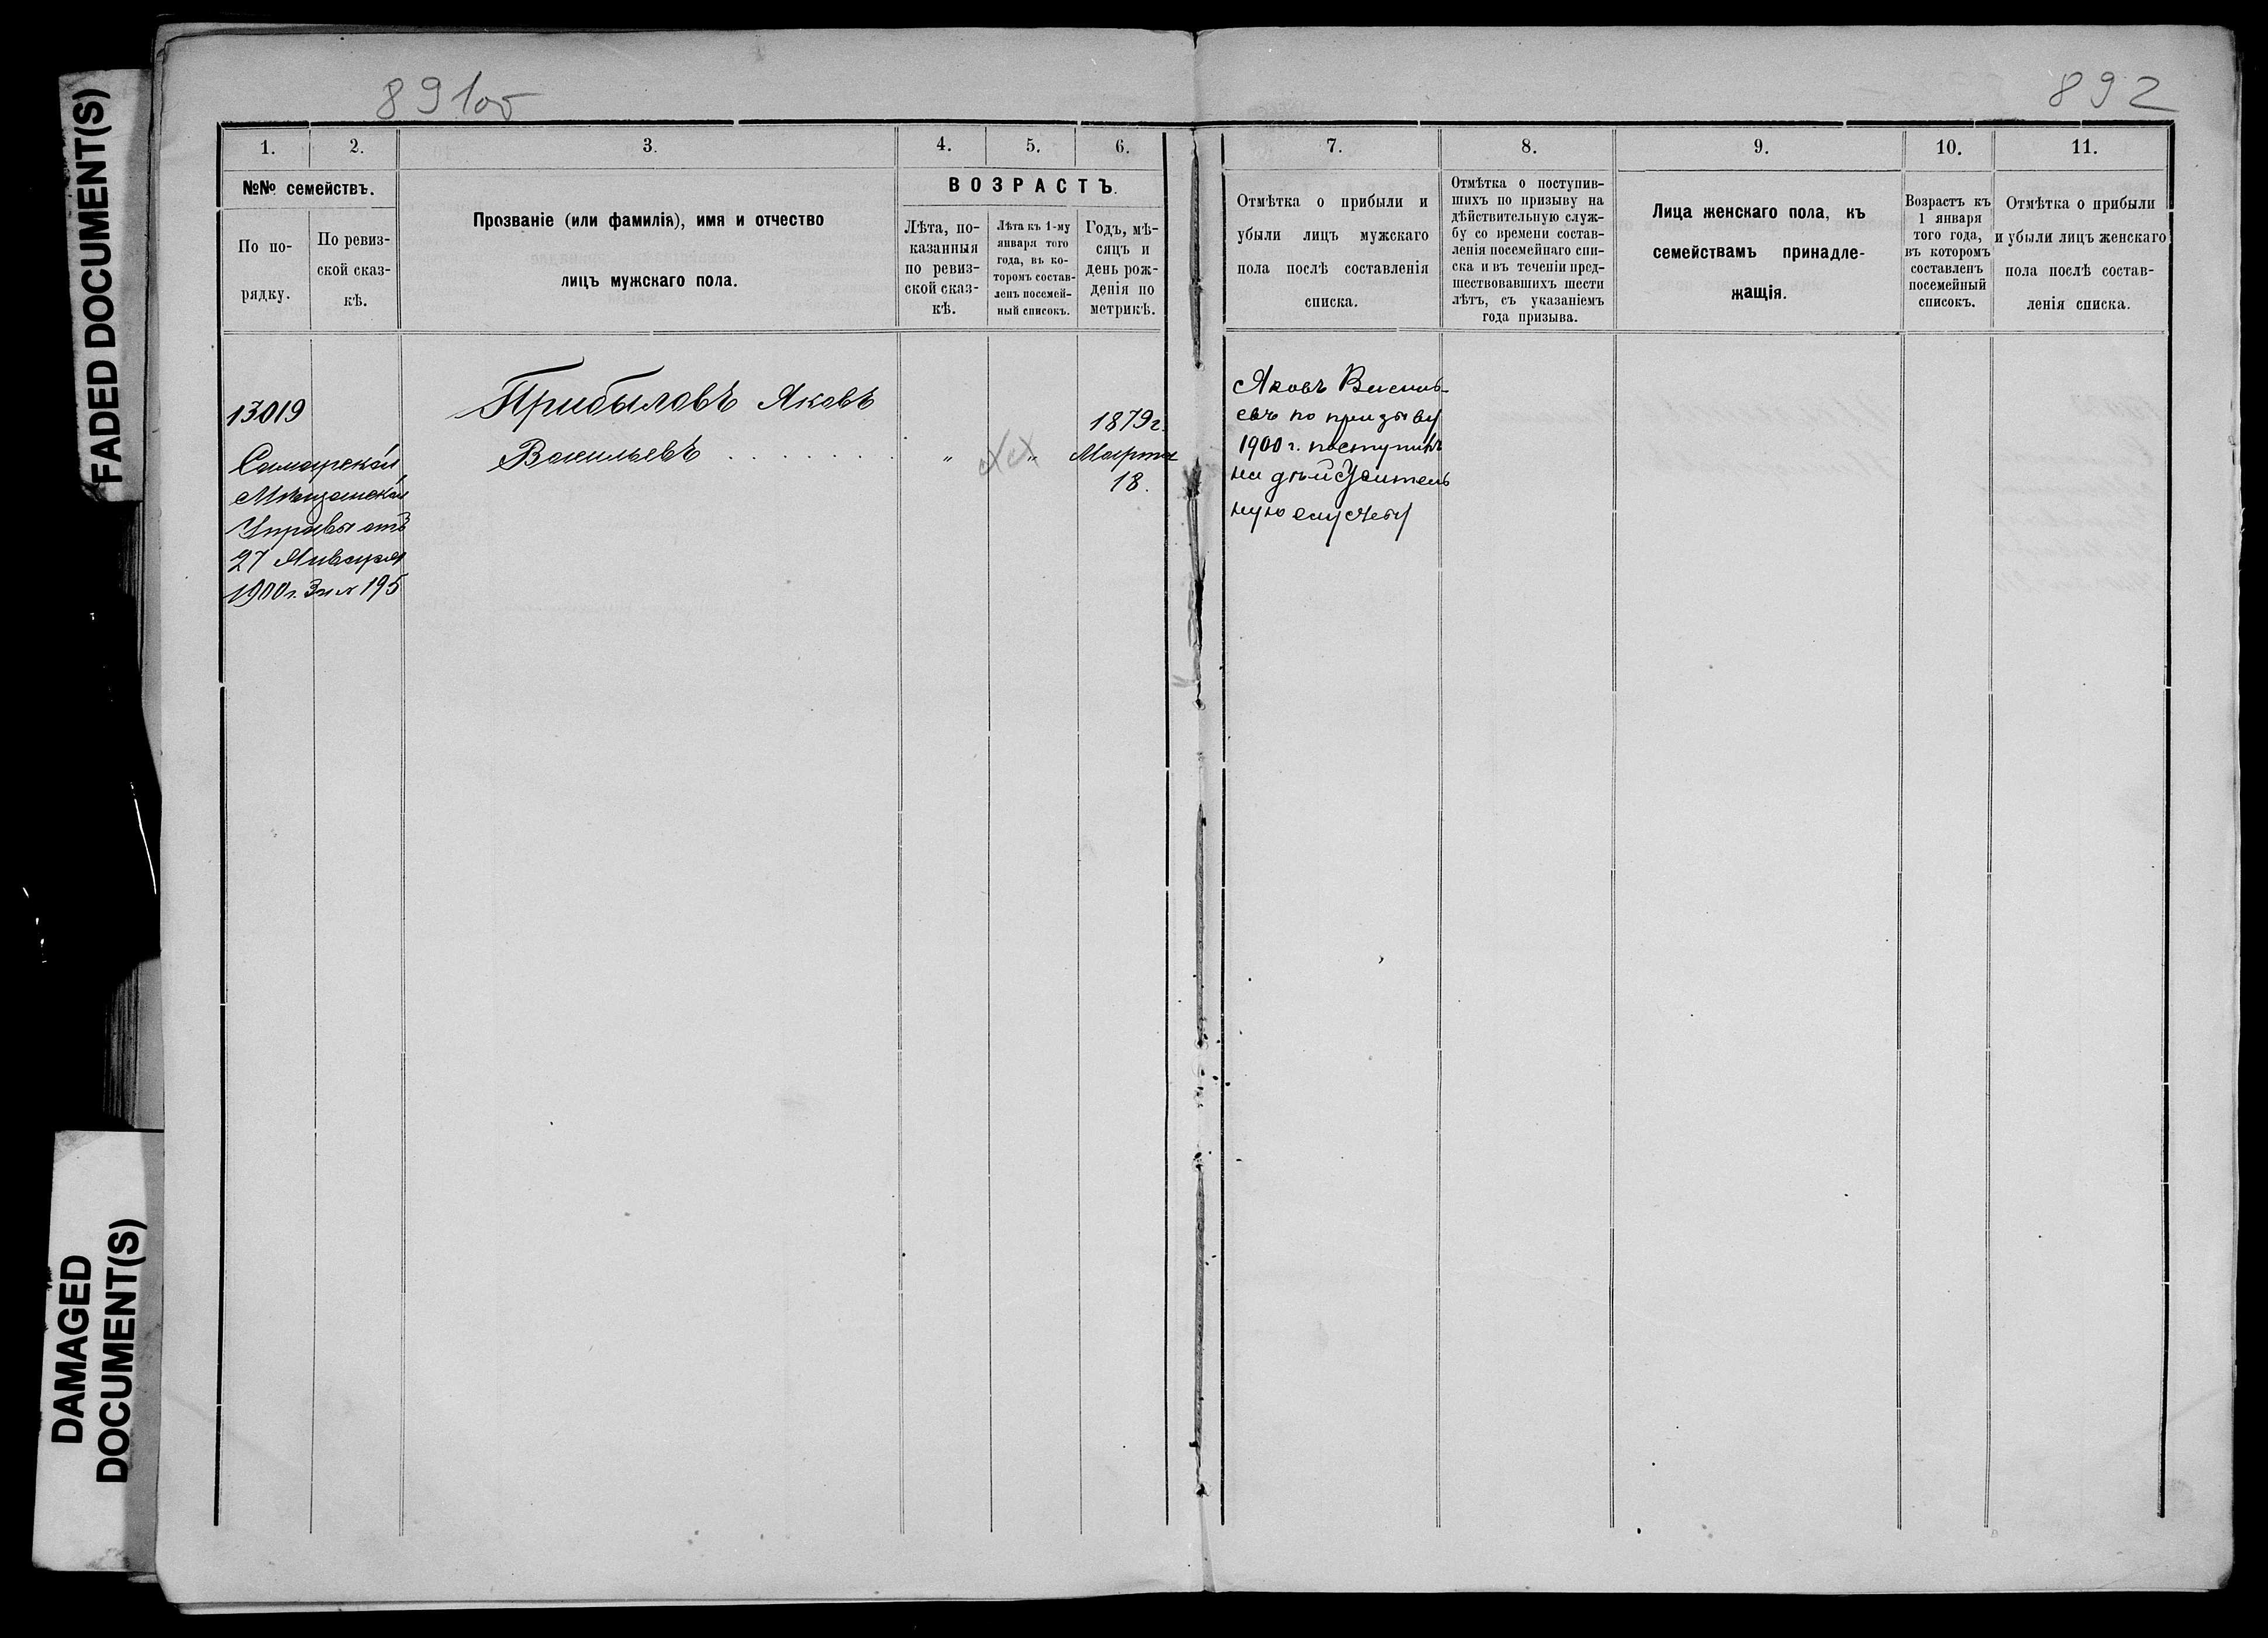 FADED DOCUMENT(S)
DAMAGED
DOCUMENT(S)
891об
892
1.
2.
3.
4.
5.
6.
№№ семействъ.
По по-
рядку.
По ревиз-
ской сказ-
кѣ.
Прозваніе (или фамилія), имя и отчество
лицъ мужскаго пола.
ВОЗРАСТЪ.
Лѣта, по-
казанныя
по ревиз-
ской сказ-
кѣ.
Лѣта къ 1-му
января того
года, въ ко-
торомъ состав-
ленъ посемей-
ный списокъ.
Годъ, мѣ-
сяцъ и
день рож-
денія по
метрикѣ.
13019
Самарской
Мѣщанской
Управы отъ
27 Января
1900 г. за № 195
Прибыловъ Яковъ
Васильевъ . . . . . . . .
„
„
1879 г.
Марта
18.
7.
8.
9.
10.
11.
Отмѣтка о прибыли и
убыли лицъ мужскаго
пола послѣ составленія
списка.
Отмѣтка о поступив-
шихъ по призыву на
дѣйствительную служ-
бу со времени состав-
ленія посемейнаго спи-
ска и въ теченіи пред-
шествовавшихъ шести
лѣтъ, съ указаніемъ
года призыва.
Лица женскаго пола, къ
семействамъ принадле-
жащія.
Возрастъ къ
1 января
того года,
въ которомъ
составленъ
посемейный
списокъ.
Отмѣтка о прибыли
и убыли лицъ женскаго
пола послѣ состав-
ленія списка.
Яковъ Василь-
евъ по призыву
1900 г. поступилъ
на дѣйствитель
ную службу